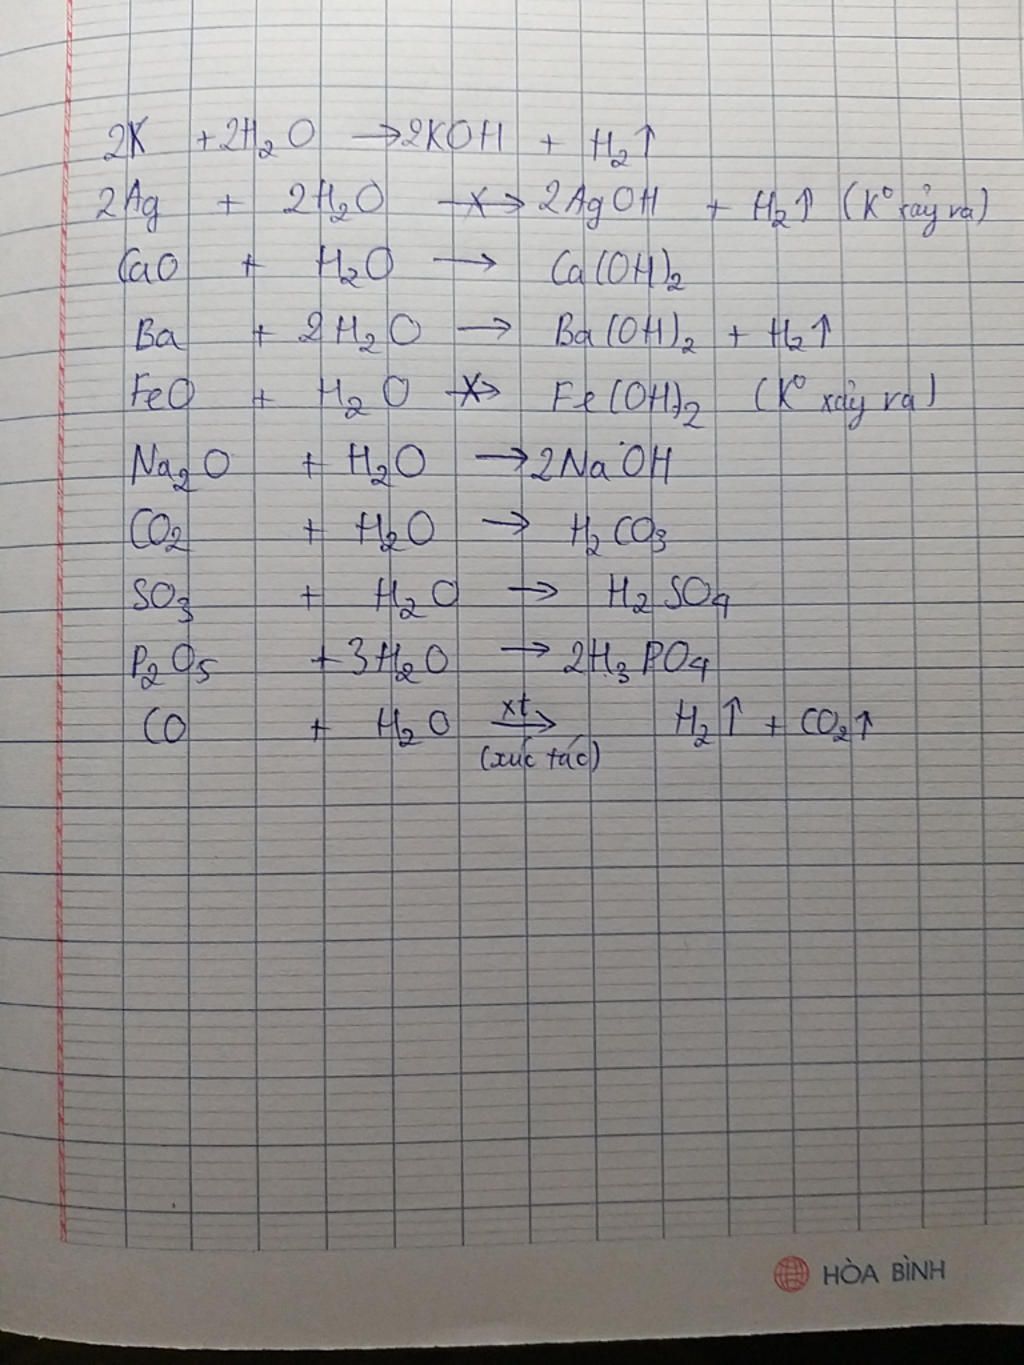 2K + 2H₂O → 2KOH + H₂↑
2Ag + 2H₂O -x-> 2AgOH + H₂↑ (K⁰ xảy ra)
CaO + H₂O → Ca(OH)₂
Ba + 2H₂O → Ba(OH)₂ + H₂↑
FeO + H₂O -x-> Fe(OH)₂ (K⁰ xảy ra)
Na₂O + H₂O → 2NaOH
CO₂ + H₂O → H₂CO₃
SO₃ + H₂O → H₂SO₄
P₂O₅ + 3H₂O → 2H₃PO₄
CO + H₂O xt→ H₂↑ + CO₂↑
(xúc tác)
HÒA BÌNH